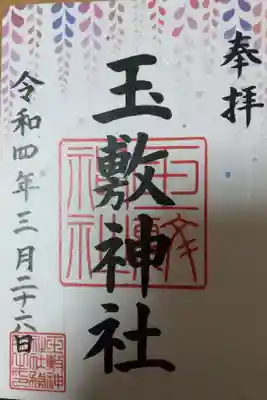 奉拝
玉敷神社
令和四年三月二十六日